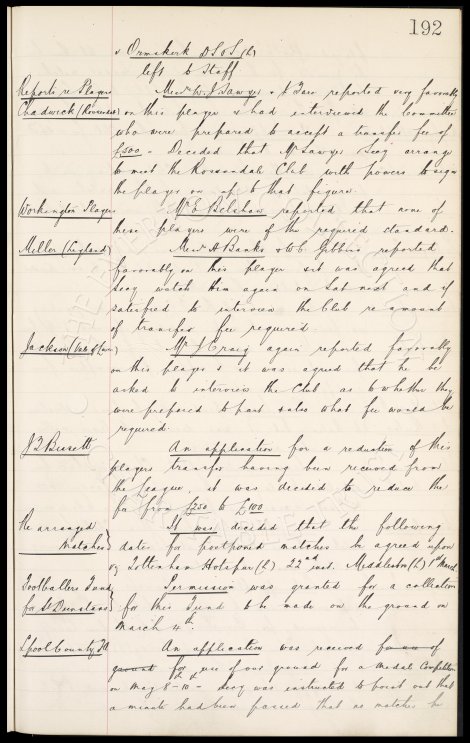 192
& Ormskirk D S of S (h)
left to Staff
Reports re Players Messrs W. J. Sawyer & J Tare reported very favorably
Chadwick (Rossendale) on this player & had interviewed the Committee
who were prepared to accept a transfer fee of
£500 - Decided that Mr Sawyer & Secy arrange
to meet the Rossendale Club with powers to sign
the player on up to that figure.
Workington Players Mr E Belshaw reported that none of
these players were of the required standard.
Meller (Leyland) Messrs H Banks & W C Gibbins reported
favorably on this player & it was agreed that
Secy watch him again on Sat next and if
satisfied to interview the Club re amount
of transfer fee required.
Jackson Mr J Craig again reported favorably
on this player & it was agreed that he be
asked to interview the Club as to whether they
were prepared to part & also what fee would be
required.
An application for a reduction of this
players transfer having been received from
the League, it was decided to reduce the
fee from £250 to £100
Re arranged It was decided that the following
matches dates for postponed matches be agreed upon
Tottenham Hotspur (h) 22nd inst. Middlesbro (h) 1st March
Footballers Fund Permission was granted for a collection
for St Dunstans for this Fund to be made on the ground on
March 4th.
Lpool County FA An application was received for use of
ground for use of our ground for a medal Competition
on May 8th - 10th - Secy was instructed to point out that
a minute had been passed that no matches be